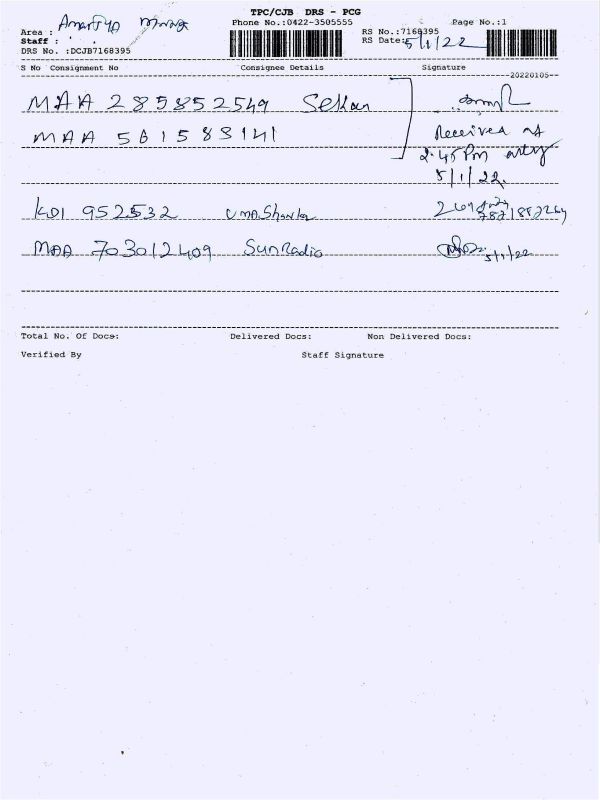 TPC/CJB DRS - PCG
Phone No.:0422-3505555 Page No.:1
Area :
Staff :
DRS No. :DCJB7168395
RS No.:7168395
RS Date: 5/1/22
S No Consignment No Consignee Details Signature
20220105
MAA 285852549 Sekar
MAA 561588141
Received at
2.45 Pm only
5/1/22.
KDI 952532 Uma Shankar
MAA 703012409 Sun Radio 5/1/22
Total No. Of Docs: Delivered Docs: Non Delivered Docs:
Verified By Staff Signature